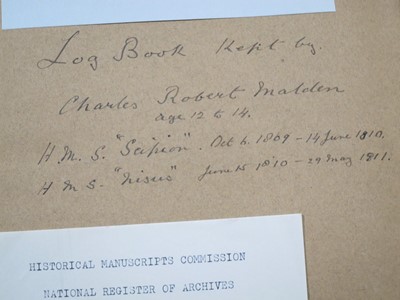 Log Book Kept by.
Charles Robert Malden
age 12 to 14.
H.M.S. "Scipion". Oct 6. 1809 - 14 June 1810.
H M S- "Nisus" June 15 1810 - 29 May 1811.
HISTORICAL MANUSCRIPTS COMMISSION
NATIONAL REGISTER OF ARCHIVES